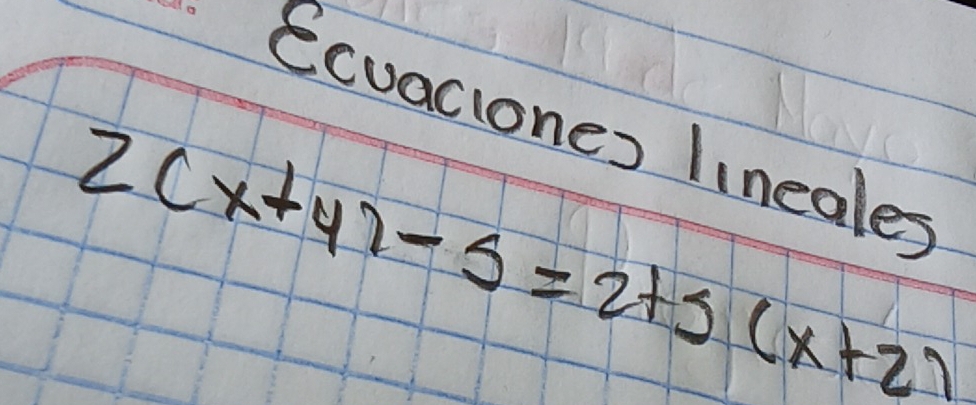 Ecuaciones lineales
2(x+4)-5=2+5(x+2)